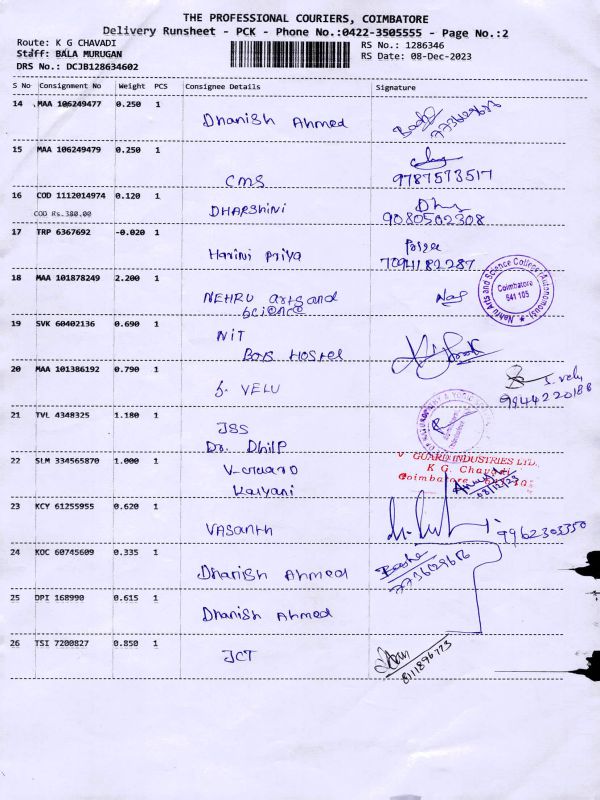 THE PROFESSIONAL COURIERS, COIMBATORE
Delivery Runsheet - PCK - Phone No.:0422-3505555 - Page No.:2
Route: K G CHAVADI
RS No.: 1286346
Staff: BALA MURUGAN
RS Date: 08-Dec-2023
DRS No.: DCJB128634602
S No Consignment No Weight PCS Consignee Details Signature
14 MAA 106249477 0.250 1
Dhanish Ahmed
15 MAA 106249479 0.250 1
CMS 9787573517
16 COD 1112014974 0.120 1
COD Rs.380.00 DHARSHINI 9080502308
17 TRP 6367692 -0.020 1
Harini Priya 7094182287
18 MAA 101878249 2.200 1
NEHRU arts and
science
Nehru Arts and Science College (Autonomous)
Coimbatore
641 105
19 SVK 60402136 0.690 1
NIT
Boys Hostel
20 MAA 101386192 0.790 1
S. VELU
S. Velu
9944220186
21 TVL 4348325 1.180 1
JSS
Dr. Dhilp
22 SLM 334565870 1.000 1
V-GUARD
Kalyani
V GUARD INDUSTRIES LTD.,
K G. Chavadi
Coimbatore
08/12/23
23 KCY 61255955 0.620 1
VASANTH 9962303350
24 KOC 60745609 0.335 1
Dhanish Ahmed
25 DPI 168990 0.615 1
Dhanish Ahmed
26 TSI 7200827 0.850 1
JCT
8111896773